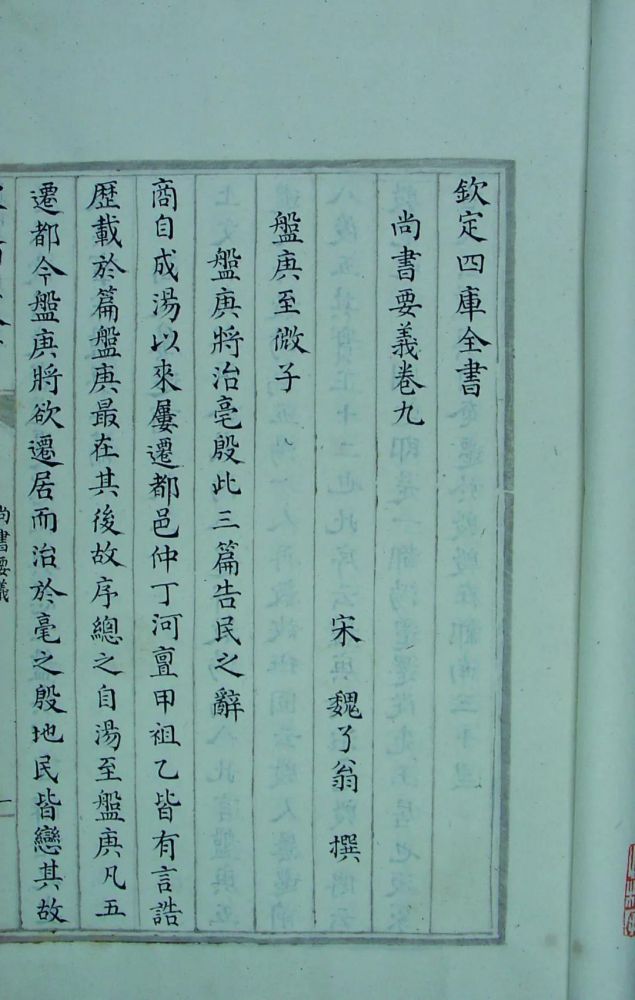 欽定四庫全書
尚書要義卷九
宋魏了翁撰
盤庚至微子
盤庚將治亳殷此三篇告民之辭
商自成湯以來屢遷都邑仲丁河亶甲祖乙皆有言誥
歴載於篇盤庚最在其後故序總之自湯至盤庚凡五
遷都今盤庚將欲遷居而治於亳之殷地民皆戀其故
尚書要義
一